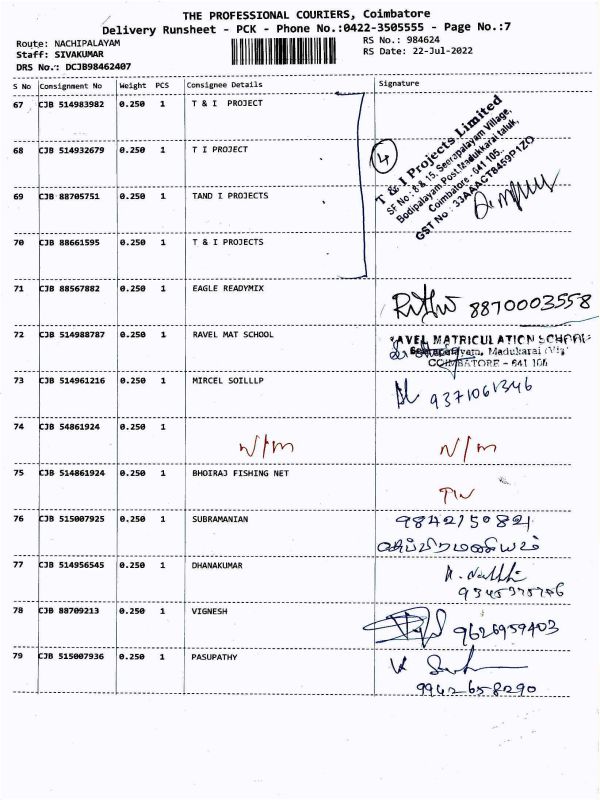 THE PROFESSIONAL COURIERS, Coimbatore
Delivery Runsheet - PCK - Phone No.:0422-3505555 - Page No.:7
Route: NACHIPALAYAM
Staff: SIVAKUMAR
DRS No.: DCJB98462407
RS No.: 984624
RS Date: 22-Jul-2022
S No Consignment No Weight PCS Consignee Details Signature
67 CJB 514983982 0.250 1 T & I PROJECT
68 CJB 514932679 0.250 1 T I PROJECT
69 CJB 88705751 0.250 1 TAND I PROJECTS
70 CJB 88661595 0.250 1 T & I PROJECTS
4
T & I Projects Limited
SF No : 8 & 15, Seerapalayam Village,
Bodipalayam Post, Madukkarai taluk,
Coimbatore - 641 105.
GST No : 33AAACT8459P1ZO
71 CJB 88567882 0.250 1 EAGLE READYMIX
8870003558
72 CJB 514988787 0.250 1 RAVEL MAT SCHOOL
AVEL MATRICULATION SCHOOL
Madukarai
COIMBATORE - 641 105
73 CJB 514961216 0.250 1 MIRCEL SOILLLP
9371061346
74 CJB 54861924 0.250 1
N/M N/M
75 CJB 514861924 0.250 1 BHOIRAJ FISHING NET
76 CJB 515007925 0.250 1 SUBRAMANIAN
9842150821
77 CJB 514956545 0.250 1 DHANAKUMAR
78 CJB 88709213 0.250 1 VIGNESH
9626959403
79 CJB 515007936 0.250 1 PASUPATHY
9942658290